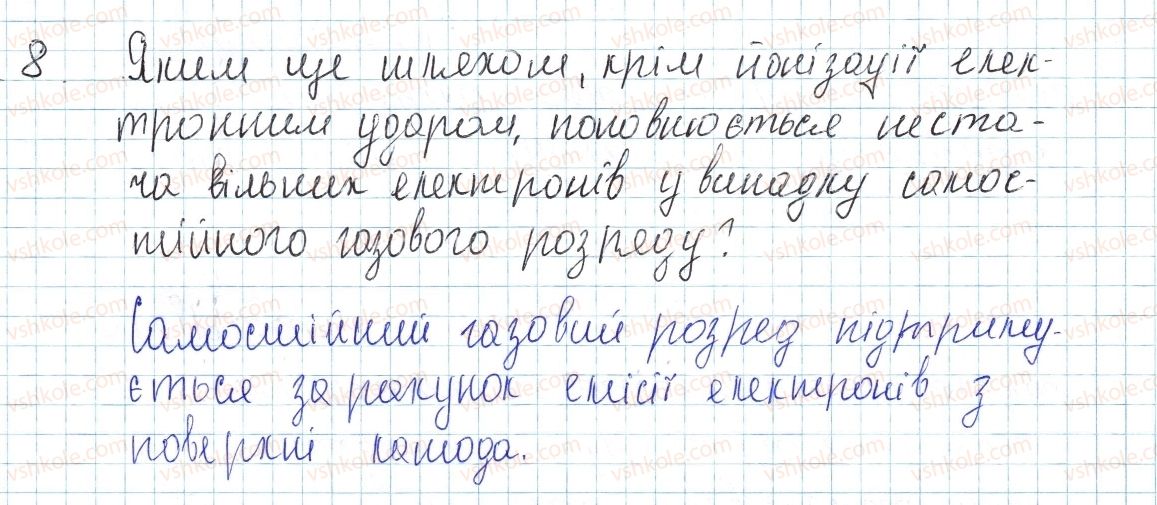 8. Яким ще шляхом, крім йонізації елек-
тронним ударом, поповнюється неста-
ча вільних електронів у випадку самос-
тійного газового розряду?
Самостійний газовий розряд підтриму-
ється за рахунок емісії електронів з
поверхні катода.